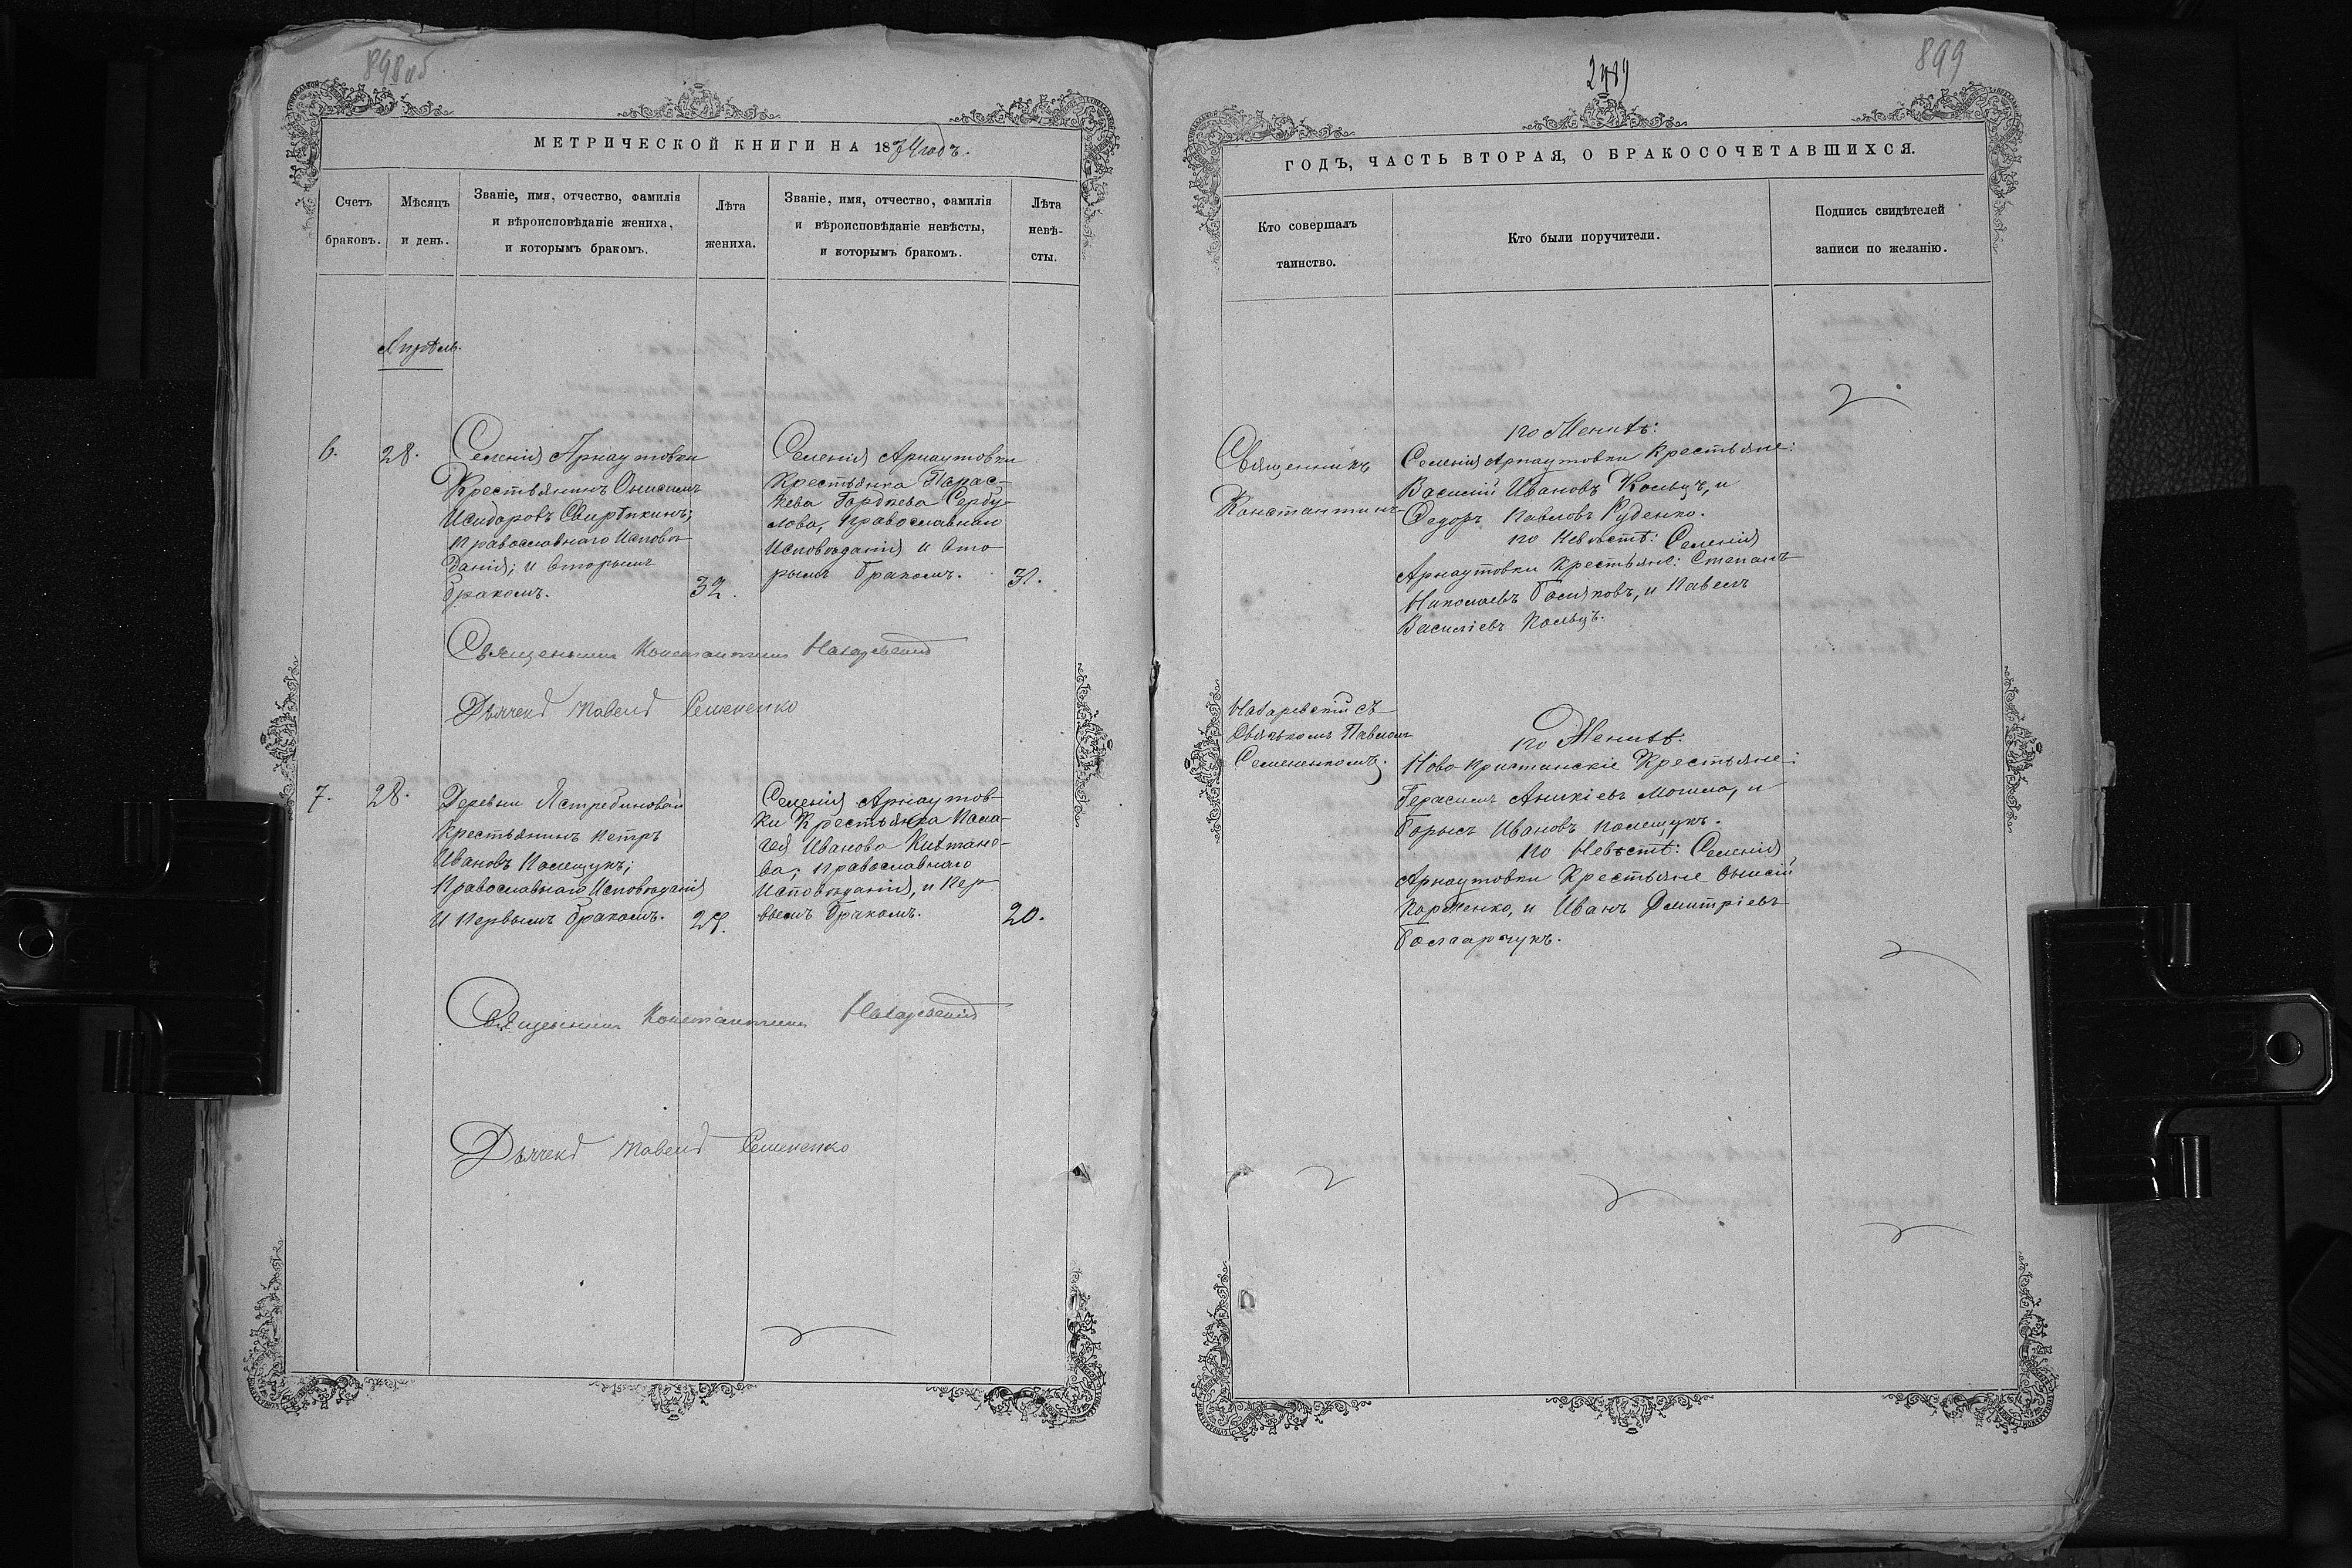 898об
МЕТРИЧЕСКОЙ КНИГИ НА 1874 годъ.
Счетъ браковъ.
Мѣсяцъ и день.
Званіе, имя, отчество, фамилія
и вѣроисповѣданіе жениха,
и которымъ бракомъ.
Лѣта жениха.
Званіе, имя, отчество, фамилія
и вѣроисповѣданіе невѣсты,
и которымъ бракомъ.
Лѣта невѣ-
сты.
Апрѣль.
6.
28.
Селенія Арнаутовки
Крестьянинъ Онисимъ
Исидоровъ Свирѣпкинъ;
Православнаго Исповѣ
данія; и вторымъ
бракомъ.
32.
Селенія Арнаутовки
Крестьянка Парас-
кева Гордѣева Сербу-
лова, православнаго
Исповѣданія и вто
рымъ бракомъ.
31.
Священникъ Константинъ Назаревскій
Дьячекъ Павелъ Семененко
7.
28.
Деревни Ястребиновой
Крестьянинъ Петръ
Ивановъ Полещукъ;
Православнаго Исповѣданія
И Первымъ бракомъ.
25.
Селенія Арнаутов-
ки Крестьянка Пела-
гея Иванова
ва, православнаго
Исповѣданія, и пер
вымъ бракомъ.
20.
Священникъ Константинъ Назаревскій
Дьячекъ Павелъ Семененко
899
ГОДЪ, ЧАСТЬ ВТОРАЯ, О БРАКОСОЧЕТАВШИХСЯ.
Кто совершалъ
таинство.
Кто были поручители.
Подпись свидѣтелей
записи по желанію.
Священникъ
Константинъ
Назаревскій съ
Павломъ
Семененкомъ.
по Женихѣ:
Селенія Арнаутовки Крестьяне:
Василій Ивановъ Кольцъ, и
Федоръ Павловъ Руденко.
по Невѣстѣ: Селенія
Арнаутовки Крестьяне: Степанъ
Николаевъ и Павелъ
Василіевъ Кольцъ.
по Женихѣ:
Ново Крестьяне:
Герасимъ Аникіевъ Могила, и
Борисъ Ивановъ Полещукъ.
по Невѣстѣ: Селенія
Арнаутовки Крестьяне
и Иванъ Дмитріевъ
Болгарчукъ.